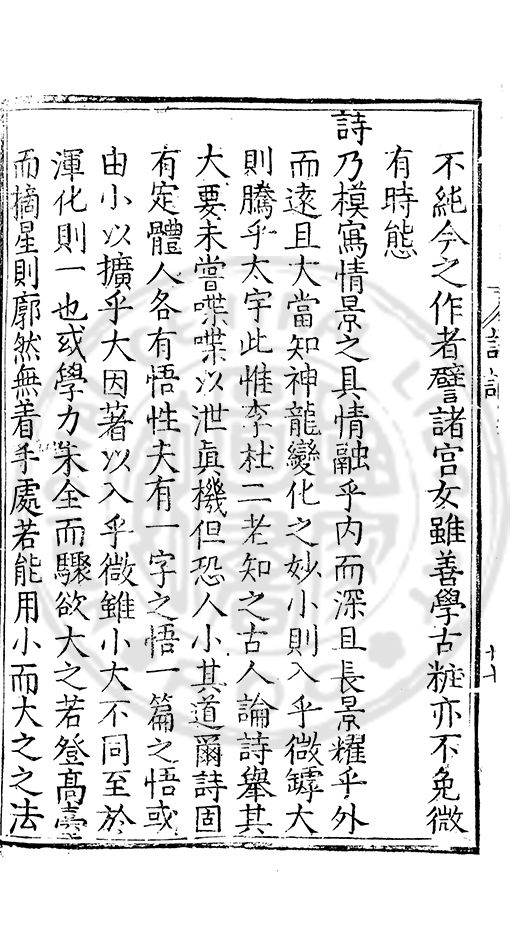 不純今之作者譬諸宮女雖善學古粧亦不免微
有時態
詩乃模寫情景之具情融乎內而深且長景耀乎外
而遠且大當知神龍變化之妙小則入乎微罅大
則騰乎太宇此惟李杜二老知之古人論詩舉其
大要未嘗喋喋以泄眞機但恐人小其道爾詩固
有定體人各有悟性夫有一字之悟一篇之悟或
由小以擴乎大因著以入乎微雖小大不同至於
渾化則一也或學力未全而驟欲大之若登高臺
而摘星則廓然無着手處若能用小而大之之法